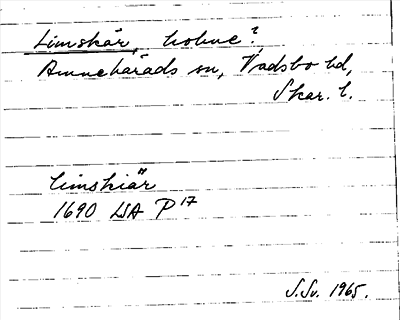 Limskär, holme?
Amnehärads sn, Vadsbo hd,
Skar. l.
limskiär
1690 LSA P17
S.Sv. 1965.